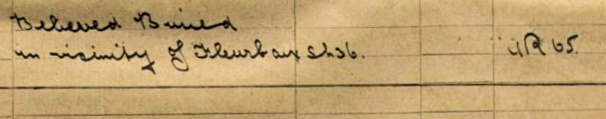 Believed Buried
in vicinity of Fleurbaix Sh36. 65.